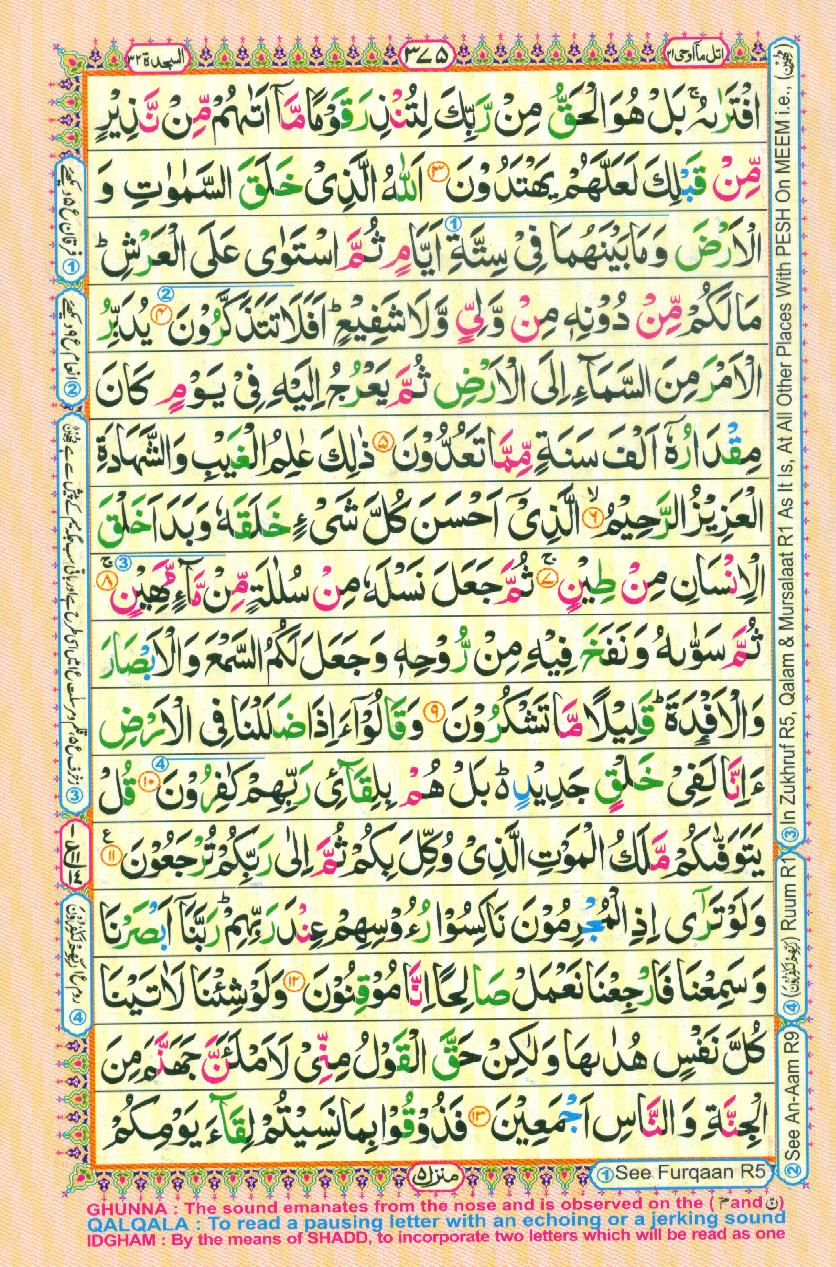 السجدة ٣٢
٣٧٥
اتل ما اوحی ٢١
افْتَرٰىهُ ۚ بَلْ هُوَ الْحَقُّ مِنْ رَّبِّكَ لِتُنْذِرَ قَوْمًا مَّاۤ اَتٰىهُمْ مِّنْ نَّذِيْرٍ
مِّنْ قَبْلِكَ لَعَلَّهُمْ يَهْتَدُوْنَ ۝٣ اَللّٰهُ الَّذِيْ خَلَقَ السَّمٰوٰتِ وَ
الْاَرْضَ وَمَا بَيْنَهُمَا فِيْ سِتَّةِ اَيَّامٍ ثُمَّ اسْتَوٰى عَلَى الْعَرْشِ ؕ
مَا لَكُمْ مِّنْ دُوْنِهٖ مِنْ وَّلِيٍّ وَّلَا شَفِيْعٍ ؕ اَفَلَا تَتَذَكَّرُوْنَ ۝٤ يُدَبِّرُ
الْاَمْرَ مِنَ السَّمَآءِ اِلَى الْاَرْضِ ثُمَّ يَعْرُجُ اِلَيْهِ فِيْ يَوْمٍ كَانَ
مِقْدَارُهٗۤ اَلْفَ سَنَةٍ مِّمَّا تَعُدُّوْنَ ۝٥ ذٰلِكَ عٰلِمُ الْغَيْبِ وَالشَّهَادَةِ
الْعَزِيْزُ الرَّحِيْمُ ۙ۝٦ الَّذِيْۤ اَحْسَنَ كُلَّ شَيْءٍ خَلَقَهٗ وَبَدَاَ خَلْقَ
الْاِنْسَانِ مِنْ طِيْنٍ ۚ۝٧ ثُمَّ جَعَلَ نَسْلَهٗ مِنْ سُلٰلَةٍ مِّنْ مَّآءٍ مَّهِيْنٍ ۚ۝٨
ثُمَّ سَوّٰىهُ وَنَفَخَ فِيْهِ مِنْ رُّوْحِهٖ وَجَعَلَ لَكُمُ السَّمْعَ وَالْاَبْصَارَ
وَالْاَفْـِٕدَةَ ؕ قَلِيْلًا مَّا تَشْكُرُوْنَ ۝٩ وَقَالُوْۤا ءَاِذَا ضَلَلْنَا فِي الْاَرْضِ
ءَاِنَّا لَفِيْ خَلْقٍ جَدِيْدٍ ۬ؕ بَلْ هُمْ بِلِقَآئِ رَبِّهِمْ كٰفِرُوْنَ ۝١٠ قُلْ
يَتَوَفّٰىكُمْ مَّلَكُ الْمَوْتِ الَّذِيْ وُكِّلَ بِكُمْ ثُمَّ اِلٰى رَبِّكُمْ تُرْجَعُوْنَ ۝١١ ع
وَلَوْ تَرٰۤى اِذِ الْمُجْرِمُوْنَ نَاكِسُوْا رُءُوْسِهِمْ عِنْدَ رَبِّهِمْ ؕ رَبَّنَاۤ اَبْصَرْنَا
وَسَمِعْنَا فَارْجِعْنَا نَعْمَلْ صَالِحًا اِنَّا مُوْقِنُوْنَ ۝١٢ وَلَوْ شِئْنَا لَاٰتَيْنَا
كُلَّ نَفْسٍ هُدٰىهَا وَلٰكِنْ حَقَّ الْقَوْلُ مِنِّيْ لَاَمْلَـَٔنَّ جَهَنَّمَ مِنَ
الْجِنَّةِ وَالنَّاسِ اَجْمَعِيْنَ ۝١٣ فَذُوْقُوْا بِمَا نَسِيْتُمْ لِقَآءَ يَوْمِكُمْ
منزل ٥
① See Furqaan R5
② See An-Aam R9
③ In Zukhruf R5, Qalam & Mursalaat R1 As It Is, At All Other Places With PESH On MEEM i.e.,
④ Ruum R1
GHUNNA : The sound emanates from the nose and is observed on the ( م and ن )
QALQALA : To read a pausing letter with an echoing or a jerking sound
IDGHAM : By the means of SHADD, to incorporate two letters which will be read as one